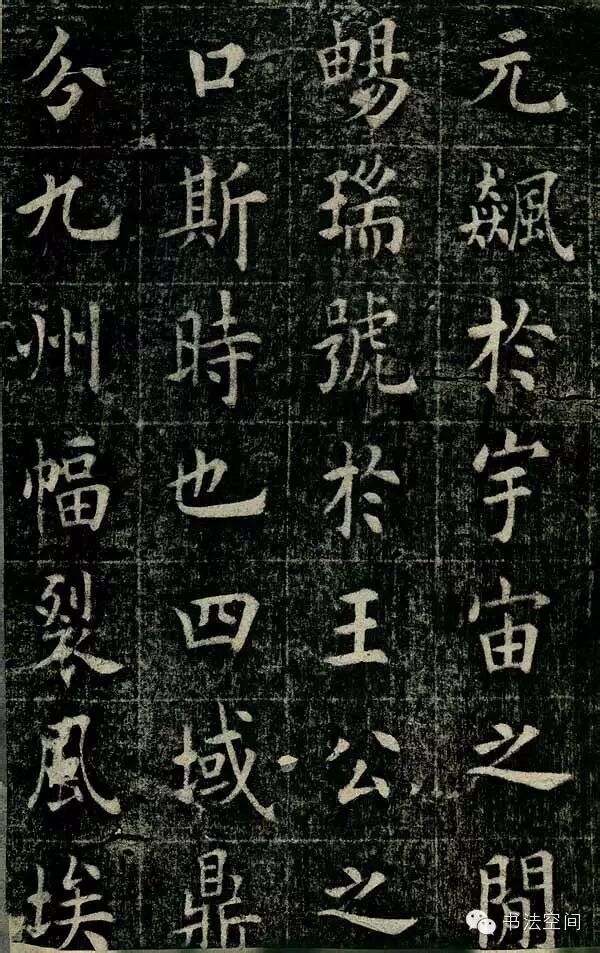 元飆於宇宙之間
暢瑞號於王公之
口斯時也四域鼎
分九州幅裂風埃
书法空间